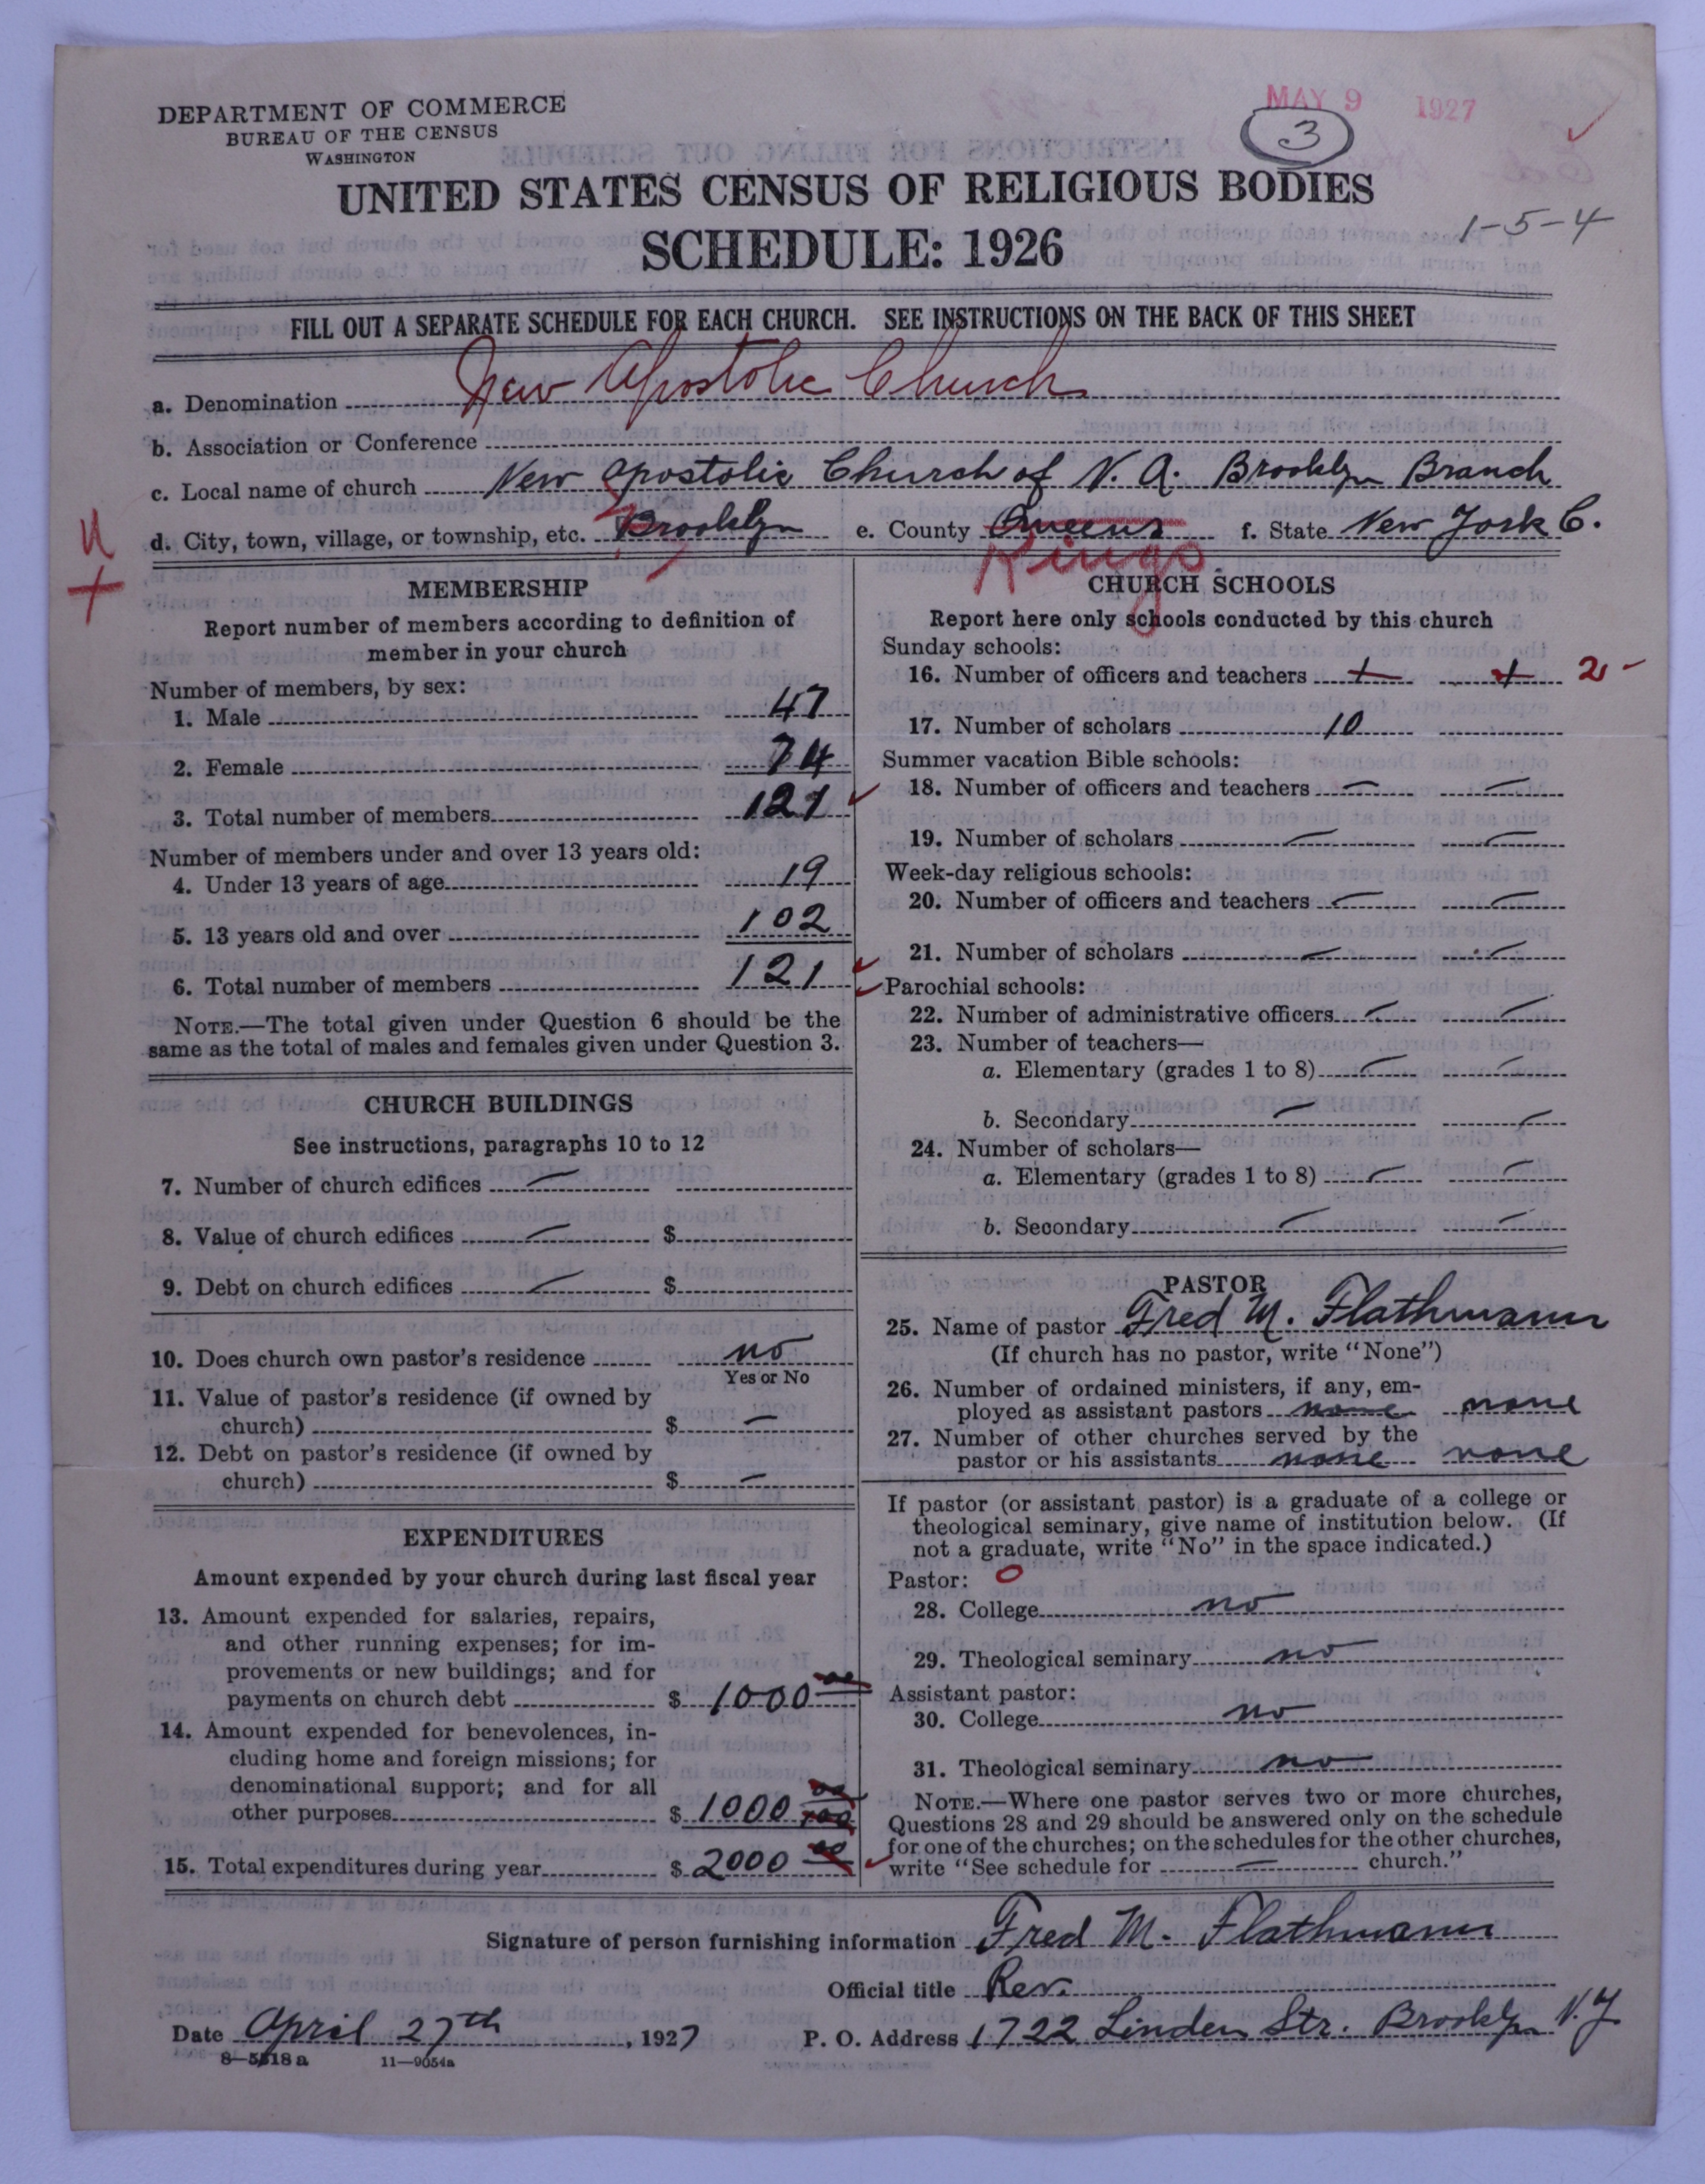 DEPARTMENT OF COMMERCE
BUREAU OF THE CENSUS
WASHINGTON
MAY 9 1927
3
UNITED STATES CENSUS OF RELIGIOUS BODIES
1-5-4
SCHEDULE: 1926
FILL OUT A SEPARATE SCHEDULE FOR EACH CHURCH. SEE INSTRUCTIONS ON THE BACK OF THIS SHEET
a. Denomination New Apostolic Church
b. Association or Conference
c. Local name of church New Apostolic Church of N. A. Brooklyn Branch
d. City, town, village, or township, etc. Brooklyn e. County Queens Kings f. State New York C.
MEMBERSHIP
Report number of members according to definition of
member in your church
Number of members, by sex:
1. Male 47
2. Female 74
3. Total number of members 121
Number of members under and over 13 years old:
4. Under 13 years of age 19
5. 13 years old and over 102
6. Total number of members 121
NOTE.—The total given under Question 6 should be the
same as the total of males and females given under Question 3.
CHURCH BUILDINGS
See instructions, paragraphs 10 to 12
7. Number of church edifices —
8. Value of church edifices — $
9. Debt on church edifices — $
10. Does church own pastor's residence no
Yes or No
11. Value of pastor's residence (if owned by
church) $ —
12. Debt on pastor's residence (if owned by
church) $ —
EXPENDITURES
Amount expended by your church during last fiscal year
13. Amount expended for salaries, repairs,
and other running expenses; for im-
provements or new buildings; and for
payments on church debt $ 1000 00
14. Amount expended for benevolences, in-
cluding home and foreign missions; for
denominational support; and for all
other purposes $ 1000 00/100
15. Total expenditures during year $ 2000 00
CHURCH SCHOOLS
Report here only schools conducted by this church
Sunday schools:
16. Number of officers and teachers 2 -
17. Number of scholars 10
Summer vacation Bible schools:
18. Number of officers and teachers — —
19. Number of scholars — —
Week-day religious schools:
20. Number of officers and teachers — —
21. Number of scholars — —
Parochial schools:
22. Number of administrative officers — —
23. Number of teachers—
a. Elementary (grades 1 to 8) — —
b. Secondary — —
24. Number of scholars—
a. Elementary (grades 1 to 8) — —
b. Secondary — —
PASTOR
25. Name of pastor Fred M. Flathmann
(If church has no pastor, write "None")
26. Number of ordained ministers, if any, em-
ployed as assistant pastors none none
27. Number of other churches served by the
pastor or his assistants none none
If pastor (or assistant pastor) is a graduate of a college or
theological seminary, give name of institution below. (If
not a graduate, write "No" in the space indicated.)
Pastor: 0
28. College no
29. Theological seminary no
Assistant pastor:
30. College no
31. Theological seminary no
NOTE.—Where one pastor serves two or more churches,
Questions 28 and 29 should be answered only on the schedule
for one of the churches; on the schedules for the other churches,
write "See schedule for — church."
Signature of person furnishing information Fred M. Flathmann
Official title Rev.
Date April 27th, 1927 P. O. Address 1722 Linden Str. Brooklyn N.Y
8—5518a 11—9054a